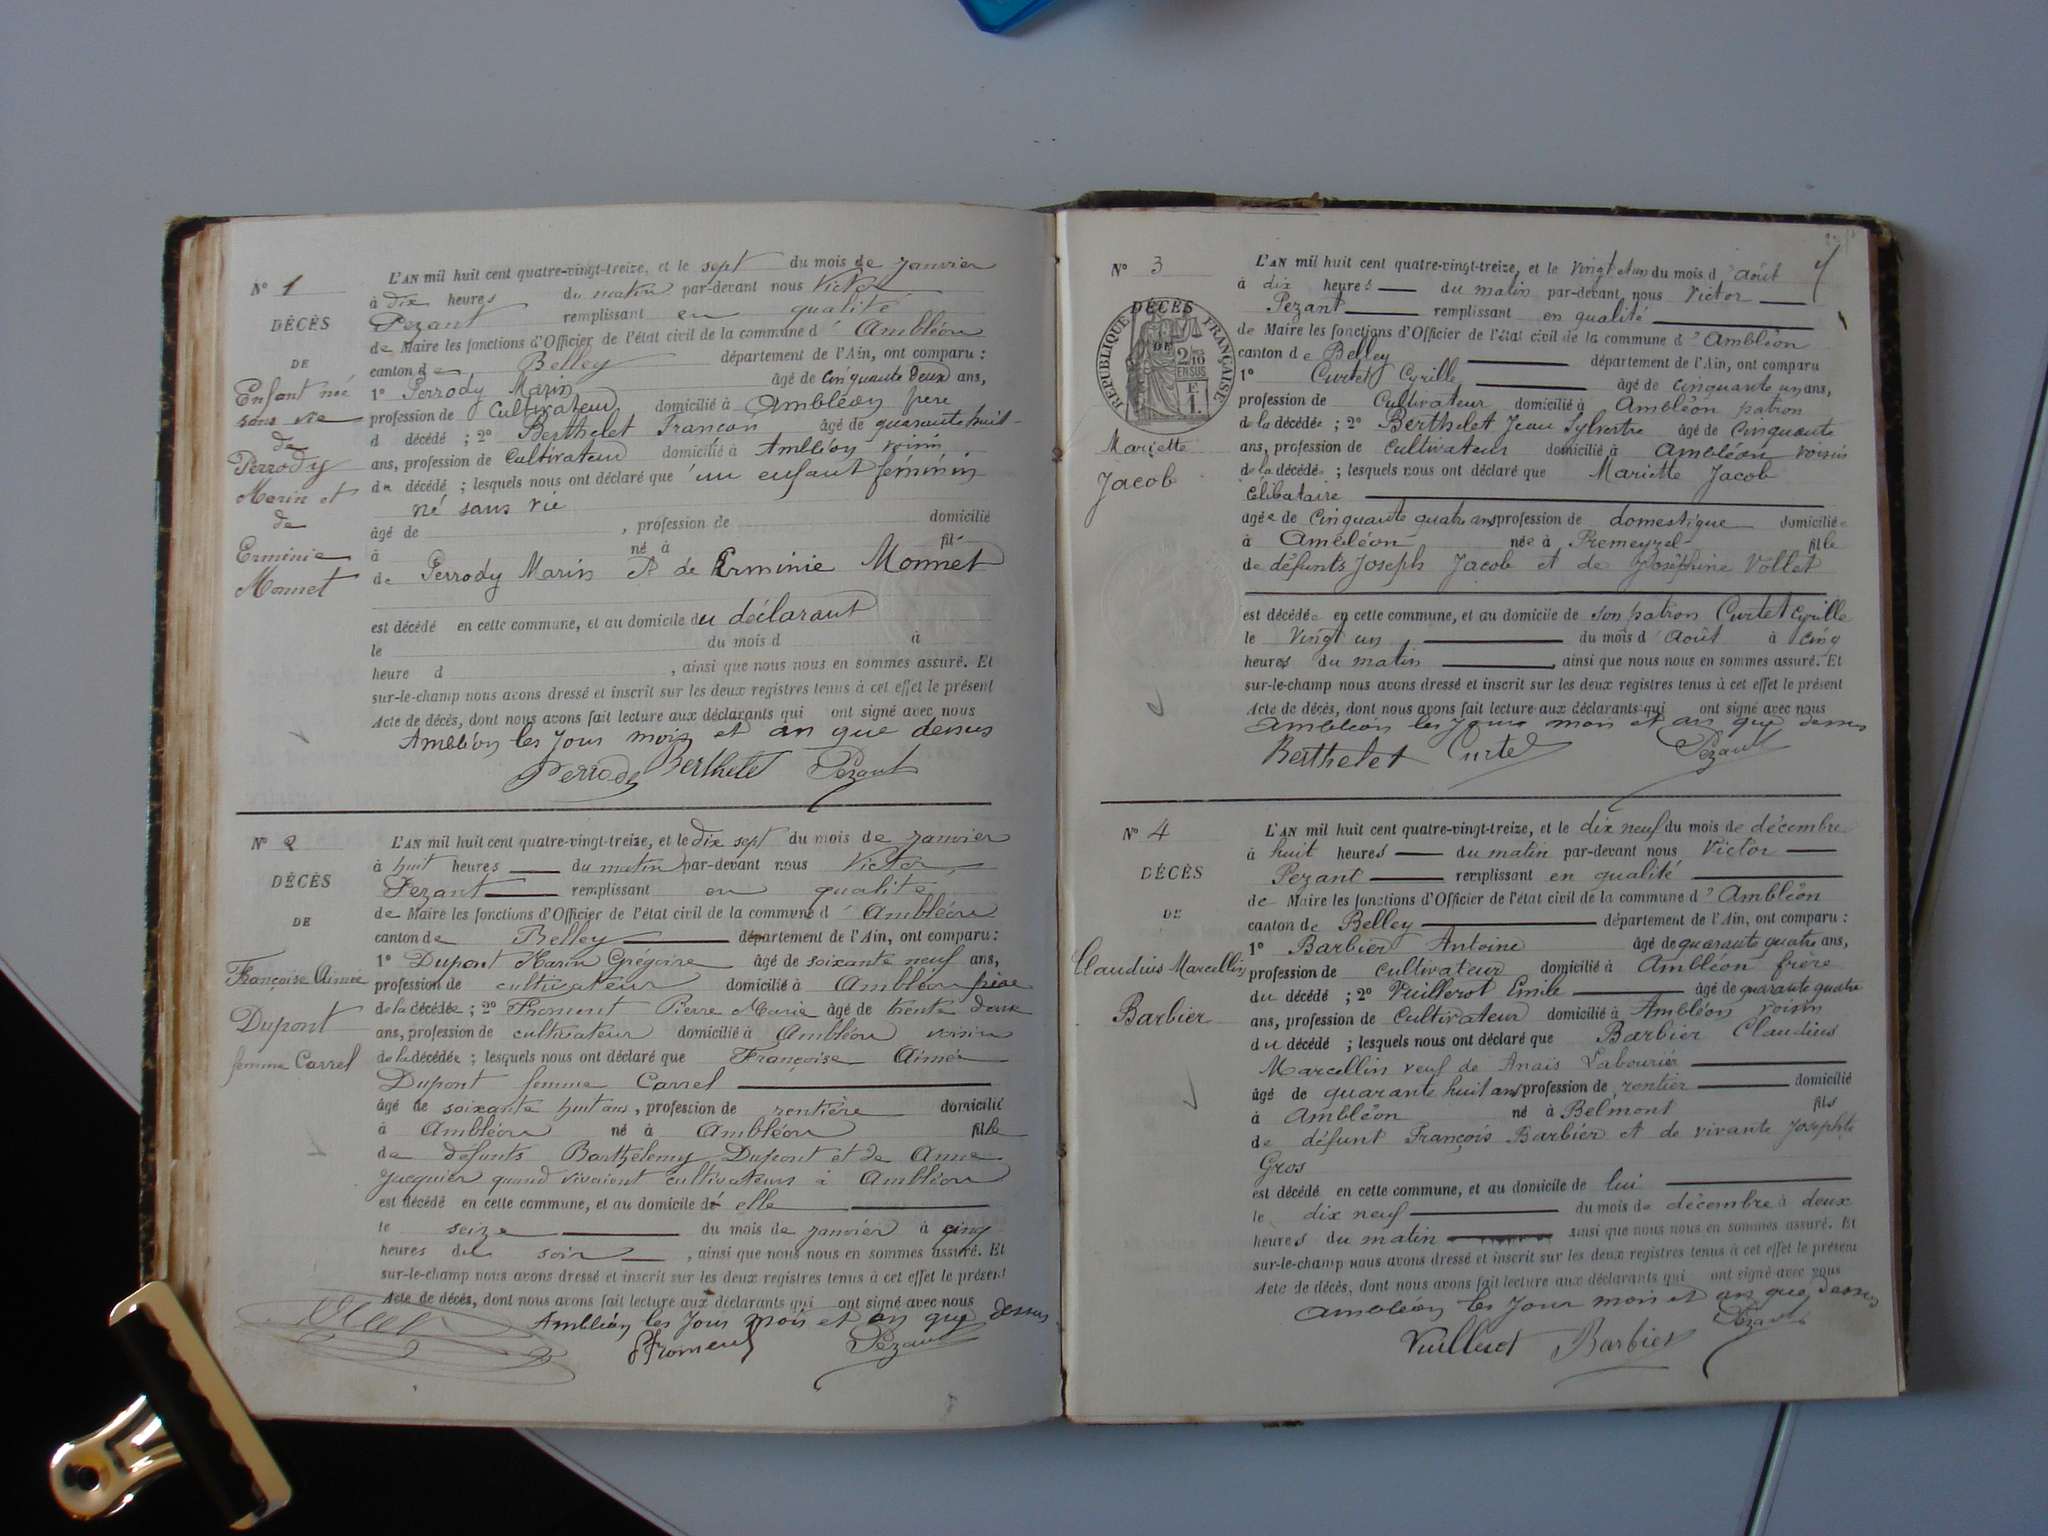 N° 1
DÉCÈS
DE
Enfant né
sans vie
de
Perrody
Marin et
de
Erminie
Monnet
L'AN mil huit cent quatre-vingt-treize, et le sept du mois de janvier
à dix heures du matin par-devant nous Victor
Pezant remplissant en qualité
de Maire les fonctions d'Officier de l'état civil de la commune d' Ambléon
canton de Belley département de l'Ain, ont comparu :
1° Perrody Marin âgé de cinquante deux ans,
profession de Cultivateur domicilié à Ambléon père
d décédé ; 2° Berthelet Francon âgé de quarante huit
ans, profession de Cultivateur domicilié à Ambléon voisin
du décédé ; lesquels nous ont déclaré que un enfant féminin
né sans vie
âgé de , profession de domicilié
à né à fil
de Perrody Marin et de Erminie Monnet
est décédé en cette commune, et au domicile du déclarant
le du mois d à
heure d , ainsi que nous nous en sommes assuré. Et
sur-le-champ nous avons dressé et inscrit sur les deux registres tenus à cet effet le présent
Acte de décès, dont nous avons fait lecture aux déclarants qui ont signé avec nous
Ambléon les jour mois et an que dessus
Perrody Berthelet Pezant
N° 2
DÉCÈS
DE
Françoise Aimée
Dupont
femme Carrel
L'AN mil huit cent quatre-vingt-treize, et le dix sept du mois de janvier
à huit heures du matin par-devant nous Victor
Pezant remplissant en qualité
de Maire les fonctions d'Officier de l'état civil de la commune d' Ambléon
canton de Belley département de l'Ain, ont comparu :
1° Dupont Marin Grégoire âgé de soixante neuf ans,
profession de cultivateur domicilié à Ambléon frère
de la décédée ; 2° Froment Pierre Marie âgé de trente deux
ans, profession de cultivateur domicilié à Ambléon voisin
de la décédée ; lesquels nous ont déclaré que Françoise Aimée
Dupont femme Carrel
âgé de soixante huit ans, profession de rentière domicilié
à Ambléon né à Ambléon fille
de défunts Barthélemy Dupont et de Anne
Jacquier quand vivaient cultivateurs à Ambléon
est décédé en cette commune, et au domicile de elle
le seize du mois de janvier à cinq
heures du soir , ainsi que nous nous en sommes assuré. Et
sur-le-champ nous avons dressé et inscrit sur les deux registres tenus à cet effet le présent
Acte de décès, dont nous avons fait lecture aux déclarants qui ont signé avec nous
Ambléon les jour mois et an que dessus
Froment Pezant
N° 3
DÉCÈS
DE
RÉPUBLIQUE FRANÇAISE
2/10 EN SUS
F 1.
Mariette
Jacob
L'AN mil huit cent quatre-vingt-treize, et le vingt et un du mois d' août
à dix heures du matin par-devant nous Victor
Pezant remplissant en qualité
de Maire les fonctions d'Officier de l'état civil de la commune d' Ambléon
canton de Belley département de l'Ain, ont comparu
1° Curtet Cyrille âgé de cinquante un ans,
profession de Cultivateur domicilié à Ambléon patron
de la décédée ; 2° Berthelet Jean Sylvestre âgé de cinquante
ans, profession de cultivateur domicilié à Ambléon voisin
de la décédée ; lesquels nous ont déclaré que Mariette Jacob
célibataire
âgée de cinquante quatre ans profession de domestique domiciliée
à Ambléon née à Premeyzel fille
de défunts Joseph Jacob et de Joséphine Vollet
est décédée en cette commune, et au domicile de son patron Curtet Cyrille
le vingt un du mois d' août à cinq
heures du matin , ainsi que nous nous en sommes assuré. Et
sur-le-champ nous avons dressé et inscrit sur les deux registres tenus à cet effet le présent
Acte de décès, dont nous avons fait lecture aux déclarants qui ont signé avec nous
Ambléon les jour mois et an que dessus
Berthelet Curtet Pezant
N° 4
DÉCÈS
DE
Claudius Marcellin
Barbier
L'AN mil huit cent quatre-vingt-treize, et le dix neuf du mois de décembre
à huit heures du matin par-devant nous Victor
Pezant remplissant en qualité
de Maire les fonctions d'Officier de l'état civil de la commune d' Ambléon
canton de Belley département de l'Ain, ont comparu :
1° Barbier Antoine âgé de quarante quatre ans,
profession de cultivateur domicilié à Ambléon frère
du décédé ; 2° Vuillerot Emile âgé de quarante quatre
ans, profession de cultivateur domicilié à Ambléon voisin
du décédé ; lesquels nous ont déclaré que Barbier Claudius
Marcellin veuf de Anaïs Labourier
âgé de quarante huit ans profession de rentier domicilié
à Ambléon né à Belmont fils
de défunt François Barbier et de vivante Josephte
Gros
est décédé en cette commune, et au domicile de lui
le dix neuf du mois de décembre à deux
heures du matin ainsi que nous nous en sommes assuré. Et
sur-le-champ nous avons dressé et inscrit sur les deux registres tenus à cet effet le présent
Acte de décès, dont nous avons fait lecture aux déclarants qui ont signé avec nous
Ambléon les jour mois et an que dessus
Vuillerot Barbier Pezant